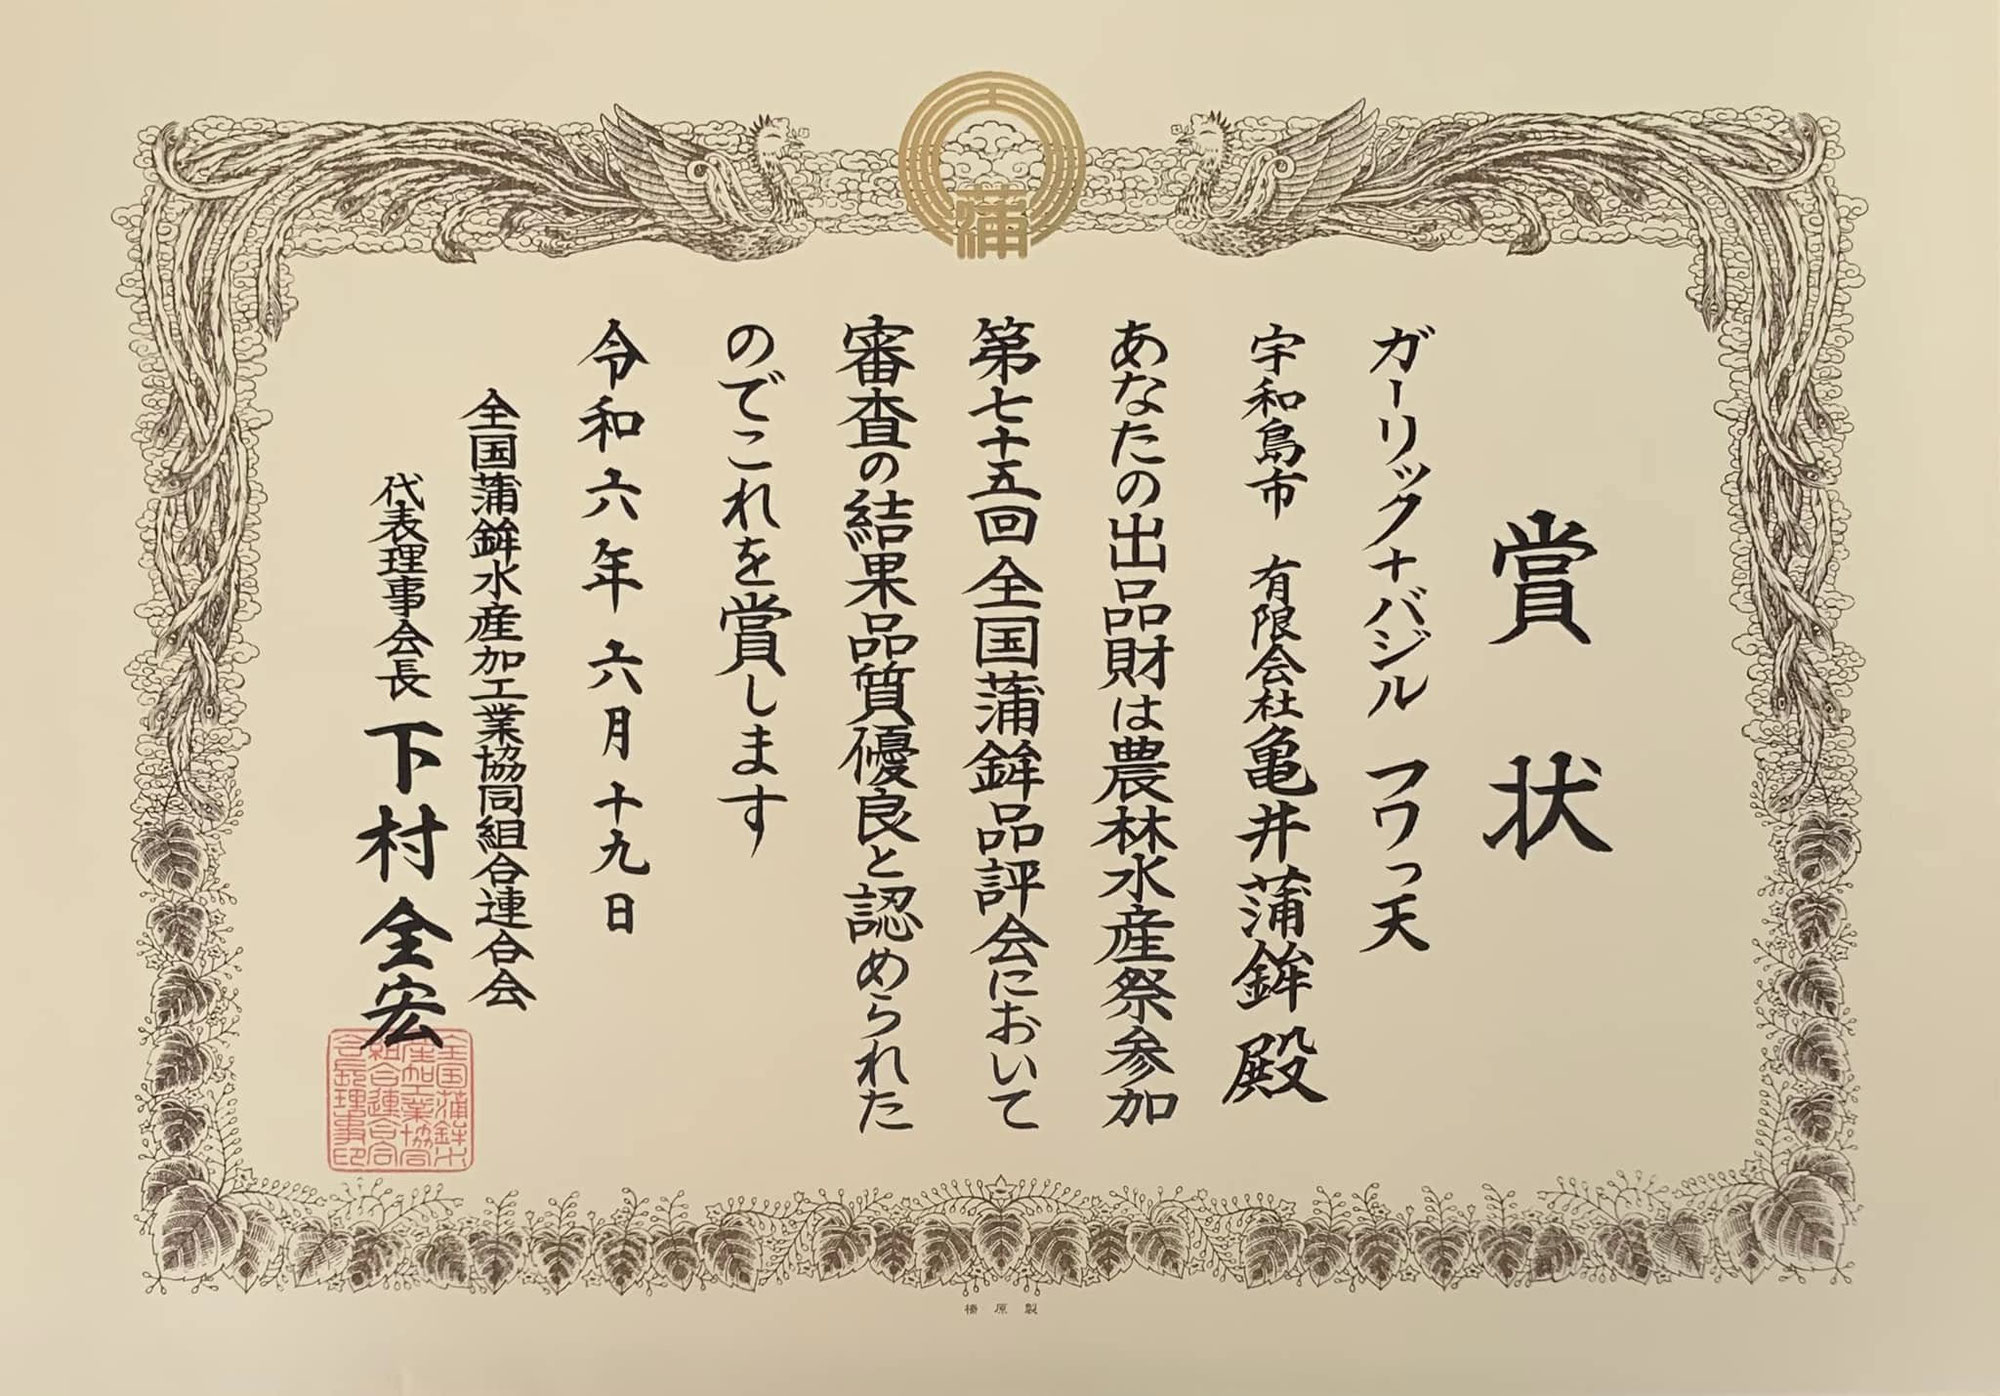 蒲
賞状
ガーリック+バジル フワっ天
宇和島市 有限会社亀井蒲鉾殿
あなたの出品財は農林水産祭参加
第七十五回全国蒲鉾品評会において
審査の結果品質優良と認められた
のでこれを賞します
令和六年六月十九日
全国蒲鉾水産加工業協同組合連合会
代表理事会長 下村全宏
榛原製